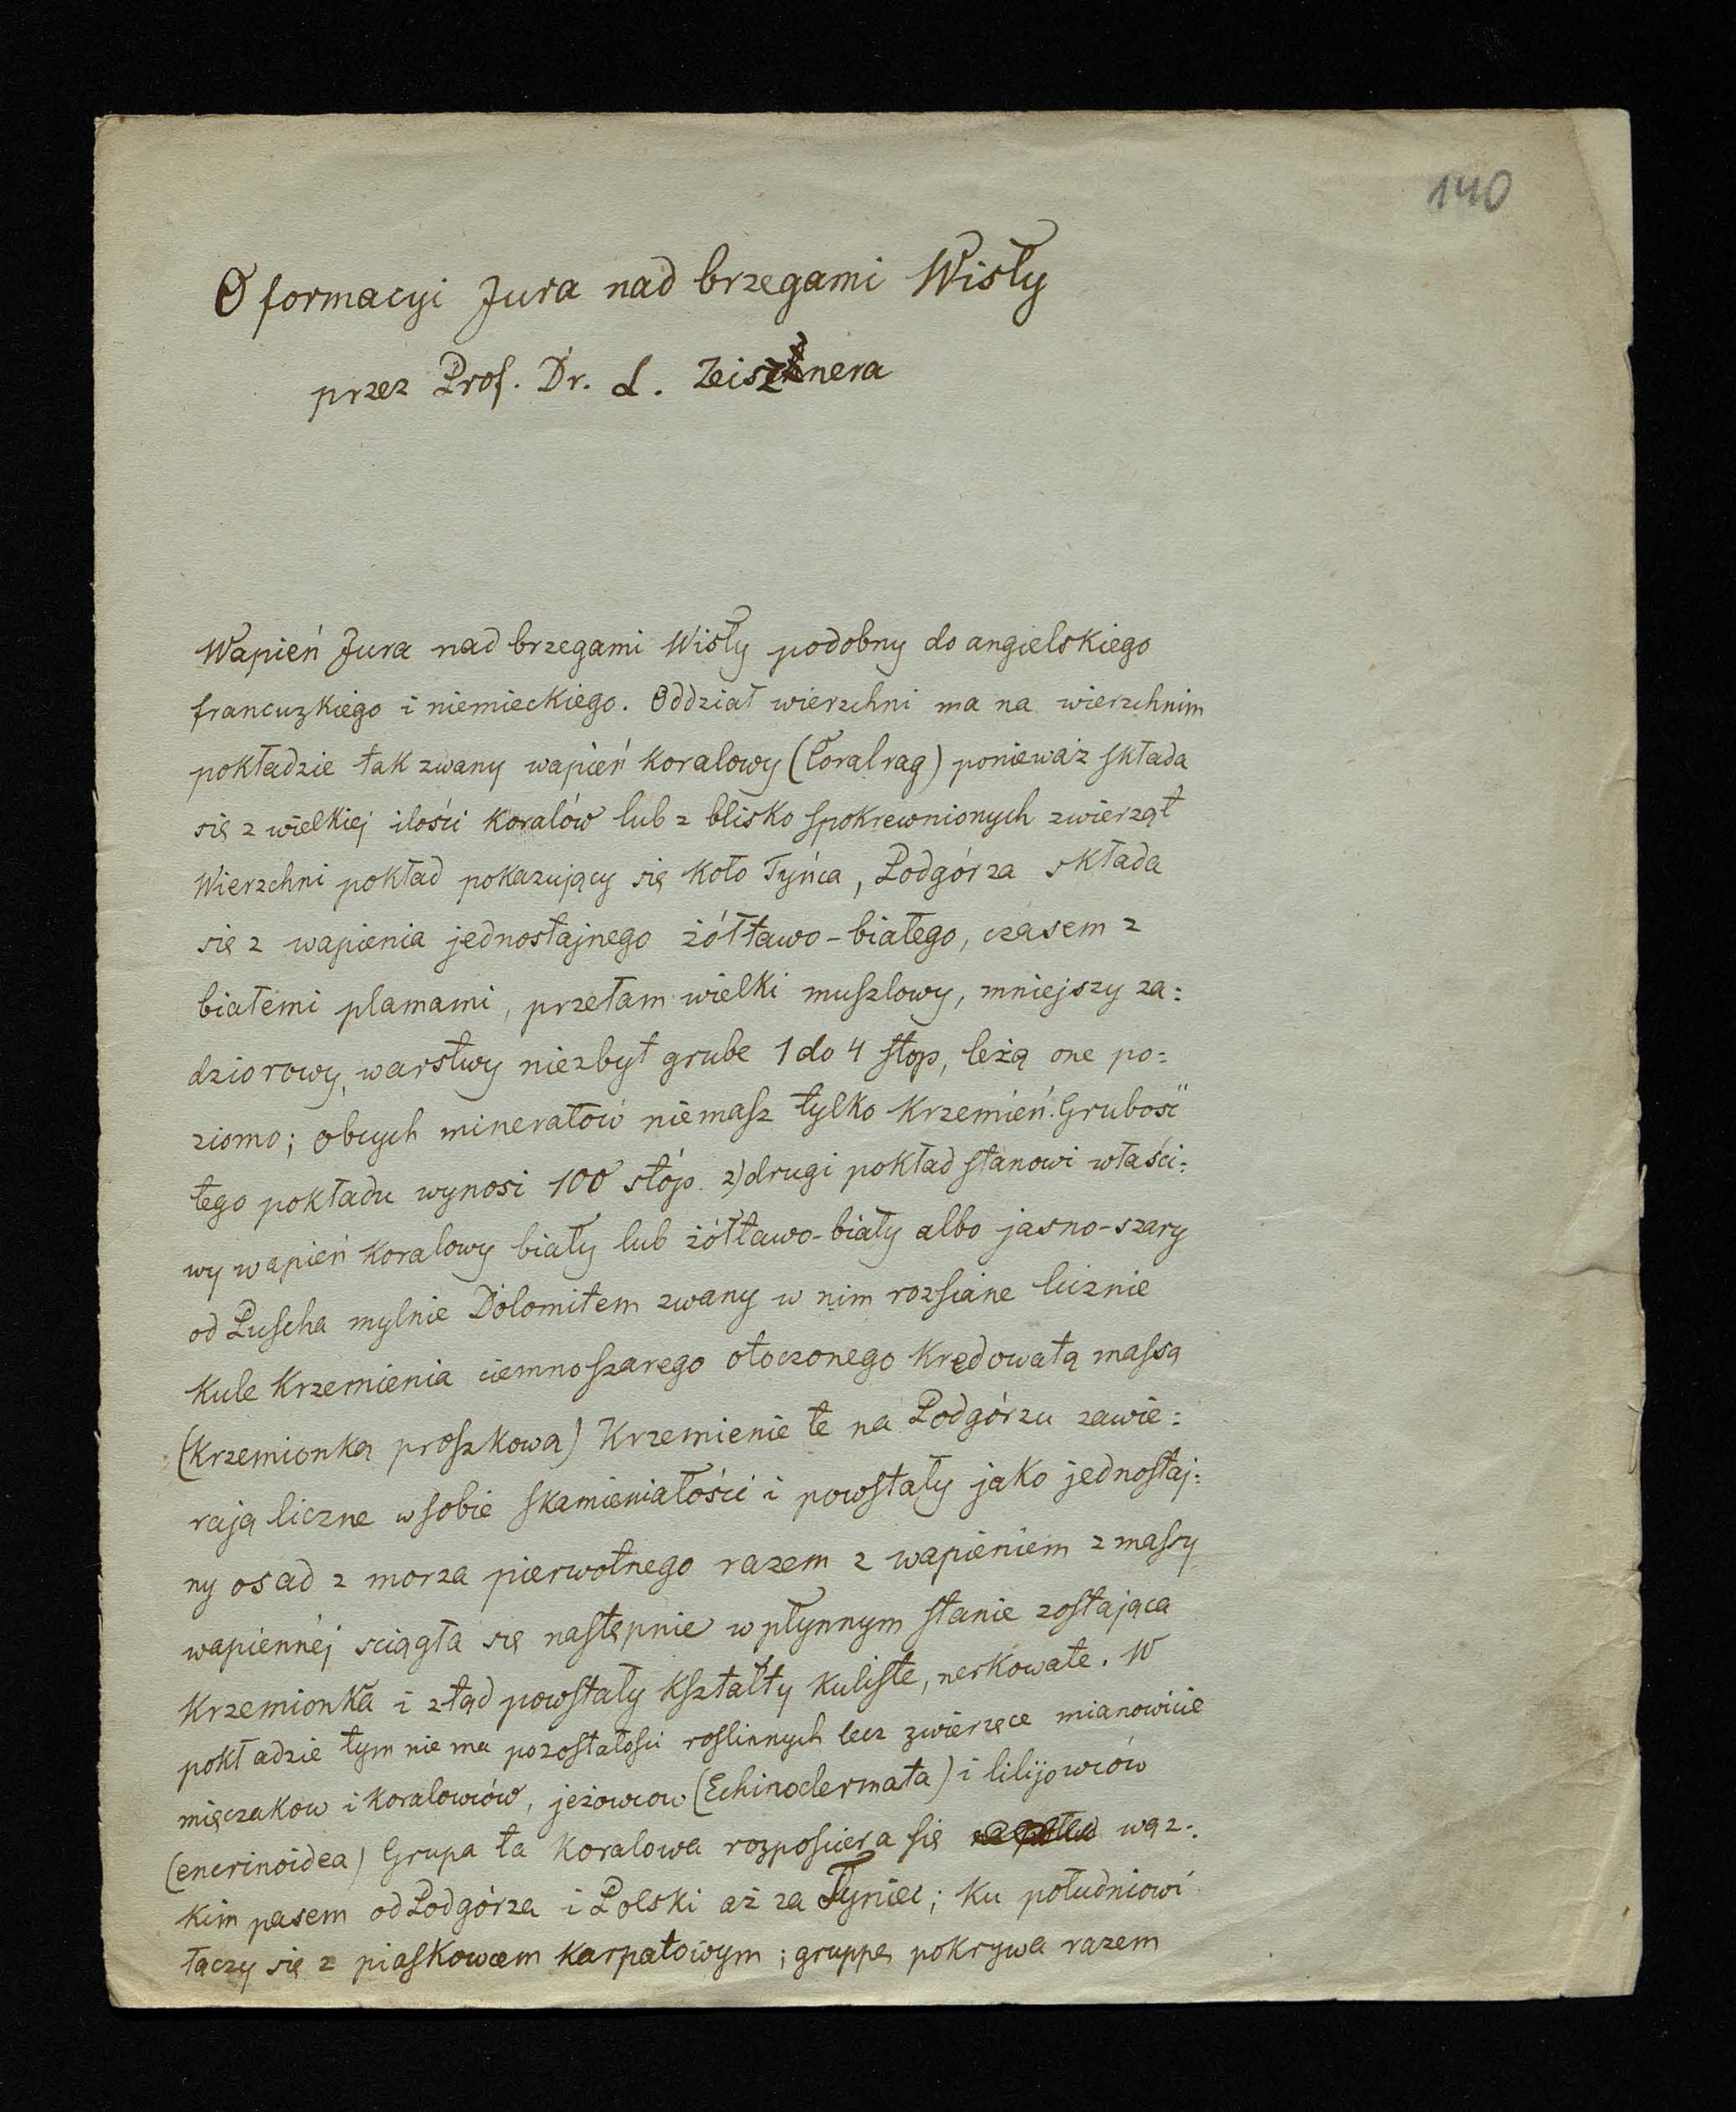 140
O formacyi Jura nad brzegami Wisły
przez Prof. Dr. L. Zeisznera
Wapień Jura nad brzegami Wisły podobny do angielskiego
francuzkiego i niemieckiego. Oddział wierzchni ma na wierzchnim
pokładzie tak zwany wapień koralowy (Coralrag) ponieważ składa
się z wielkiej ilości koralów lub z blisko spokrewnionych zwierząt
Wierzchni pokład pokazujący się koło Tyńca, Podgórza składa
się z wapienia jednostajnego żółtawo-białego, czasem z
białemi plamami, przełam wielki muszlowy, mniejszy za:
dziorowy, warstwy niezbyt grube 1 do 4 stop, leżą one po:
ziomo; obcych minerałów niemasz tylko krzemień. Grubość
tego pokładu wynosi 100 stóp. 2) drugi pokład stanowi właści:
wy wapień koralowy biały lub żółtawo-biały albo jasno-szary
od Puscha mylnie Dolomitem zwany w nim rozsiane licznie
kule krzemienia ciemnoszarego otoczonego kredowatą massą
(krzemionką proszkowa) Krzemienie te na Podgórzu zawie:
rają liczne w sobie skamieniałości i powstały jako jednostaj:
ny osad z morza pierwotnego razem z wapieniem z massy
wapiennéj sciągła się następnie w płynnym stanie zostająca
krzemionka i ztąd powstały kształty kuliste, nerkowate. W
pokładzie tym nie ma pozostałości roslinnych lecz zwierzęce mianowicie
mięczakow i koralowców, jeżowcow (Echinodermata) i lilijowców
(encrinoidea) Grupa ta koralowa rozposciera się wąz:
kim pasem od Podgórza i Polski aż za Tyniec; ku południowi
łączy się z piaskowcem karpatowym; gruppę pokrywa razem